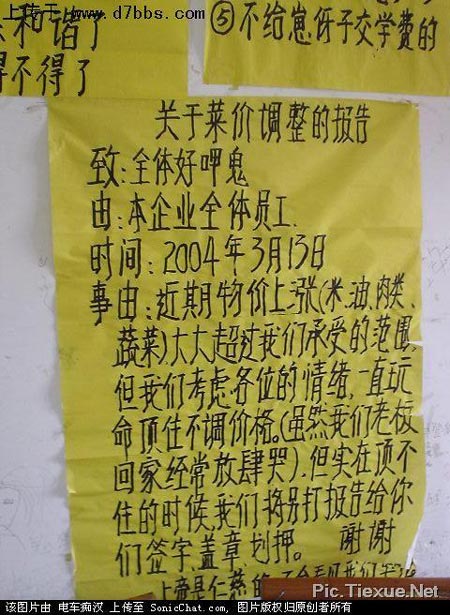 上传于 www.d7bbs.com
和谐了
得不得了
⑤不给崽伢子交学费的
关于菜价调整的报告
致:全体好呷鬼
由:本企业全体员工.
时间:2004年3月13日
事由:近期物价上涨(米.油.肉类、
蔬菜)大大超过我们承受的范围,
但我们考虑各位的情绪,一直玩
命顶住不调价格。(虽然我们老板
回家经常放肆哭),但实在顶不
住的时候,我们将另打报告给你
们签字,盖章划押。 谢谢
上帝是仁慈的
Pic.Tiexue.Net
[该图片由 电车痴汉 上传至 SonicChat.com, 图片版权归原创者所有]